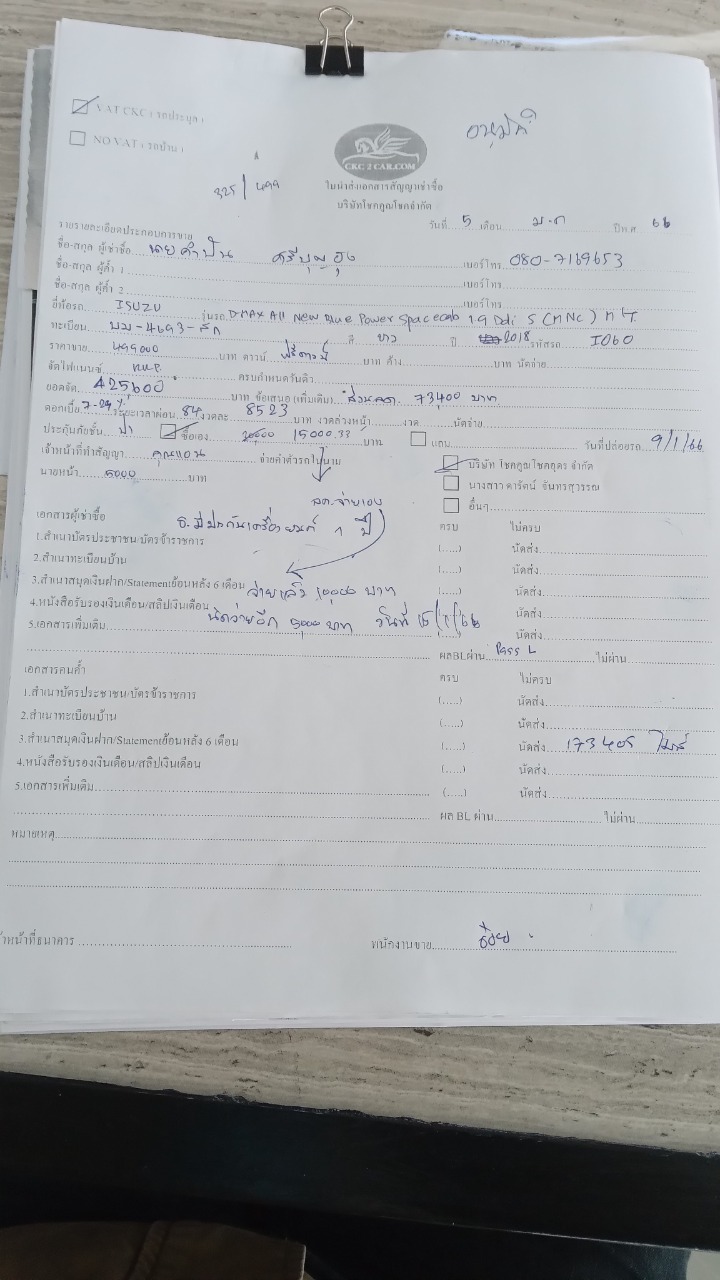 VAT CKC (รถประมูล)
NO VAT (รถบ้าน)
อนุมัติ
CKC 2 CAR.COM
325/499
ใบนำส่งเอกสารสัญญาเช่าซื้อ
บริษัทโชคคูณโชคจำกัด
วันที่ 5 เดือน ม.ค ปีพ.ศ 66
รายรายละเอียดประกอบการขาย
ชื่อ-สกุล ผู้เช่าซื้อ นายคำปัน ศรีบุญ เบอร์โทร 080-7169653
ชื่อ-สกุล ผู้ค้ำ 1 เบอร์โทร
ชื่อ-สกุล ผู้ค้ำ 2 เบอร์โทร
ยี่ห้อรถ ISUZU รุ่นรถ D-MAX All New Blue Power Spacecab 1.9 Ddi S (MNC) MT.
ทะเบียน สี ขาว ปี 2018 รหัสรถ I060
ราคาขาย 499000 บาท ดาวน์ ฟรีดาวน์ บาท ค้าง บาท นัดจ่าย
จัดไฟแนนซ์ ครบกำหนดวันดิว
ยอดจัด 425,600 บาท ข้อเสนอ (เพิ่มเติม) ส่วนลด. 73,400 บาท
ดอกเบี้ย 7.29 % ระยะเวลาผ่อน 84 งวดละ 8523 บาท งวดล่วงหน้า งวด นัดจ่าย
ประกันภัยชั้น ซื้อเอง 15000 บาท แถม วันที่ปล่อยรถ 9/1/66
เจ้าหน้าที่ทำสัญญา จ่ายค่าตัวรถในนาม บริษัท โชคคูณโชคอุดร จำกัด
นายหน้า 5000 บาท นางสาว ดารัตน์ จันทรสุวรรณ
ลค.จ่ายเอง อื่นๆ
เอกสารผู้เช่าซื้อ ครบ ไม่ครบ
มีประกันเครื่องยนต์ 1 ปี
1.สำเนาบัตรประชาชน/บัตรข้าราชการ (.....) นัดส่ง
2.สำเนาทะเบียนบ้าน (.....) นัดส่ง
3.สำเนาสมุดเงินฝาก/Statementย้อนหลัง 6 เดือน จ่ายแล้ว 10,000 บาท (.....) นัดส่ง
4.หนังสือรับรองเงินเดือน/สลิปเงินเดือน (.....) นัดส่ง
นัดจ่ายอีก 5000 บาท วันที่ 15/1/66
5.เอกสารเพิ่มเติม นัดส่ง
ผลBL ผ่าน Pass L ไม่ผ่าน
เอกสารคนค้ำ ครบ ไม่ครบ
1.สำเนาบัตรประชาชน/บัตรข้าราชการ (.....) นัดส่ง
2.สำเนาทะเบียนบ้าน (.....) นัดส่ง
3.สำเนาสมุดเงินฝาก/Statementย้อนหลัง 6 เดือน (.....) นัดส่ง 173405 ไมล์
4.หนังสือรับรองเงินเดือน/สลิปเงินเดือน (.....) นัดส่ง
5.เอกสารเพิ่มเติม (.....) นัดส่ง
ผล BL ผ่าน ไม่ผ่าน
หมายเหตุ
้าหน้าที่ธนาคาร พนักงานขาย